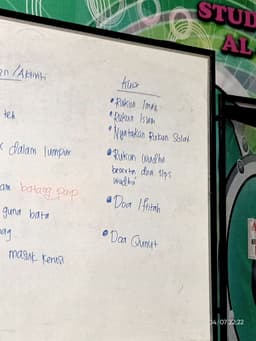 STUD
AL
/Aktiviti
teh
dalam lumpur
batang paip
guna bata
masuk kerusi
Rukun Iman
Rukun Islam
Nyatakan Rukun Solat
Rukun wudhu
beserta doa slps
wudhu
Doa Iftitah
Doa Qunut
04/07/22:22